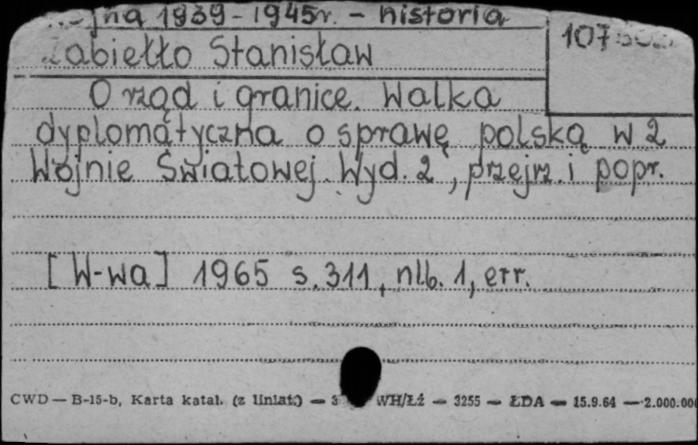 1939-1945r. - historia
Stanisław
O rząd i granice. Walka
dyplomatyczna o sprawę polską w 2
Wojnie Światowej. Wyd. 2, przejrz. i popr.
[W-wa] 1965 s. 311, nlb. 1, err.
CWD — B-15-b, Karta katal. (z liniat.) — WH/Łź — 3255 — ŁDA — 15.9.64 —